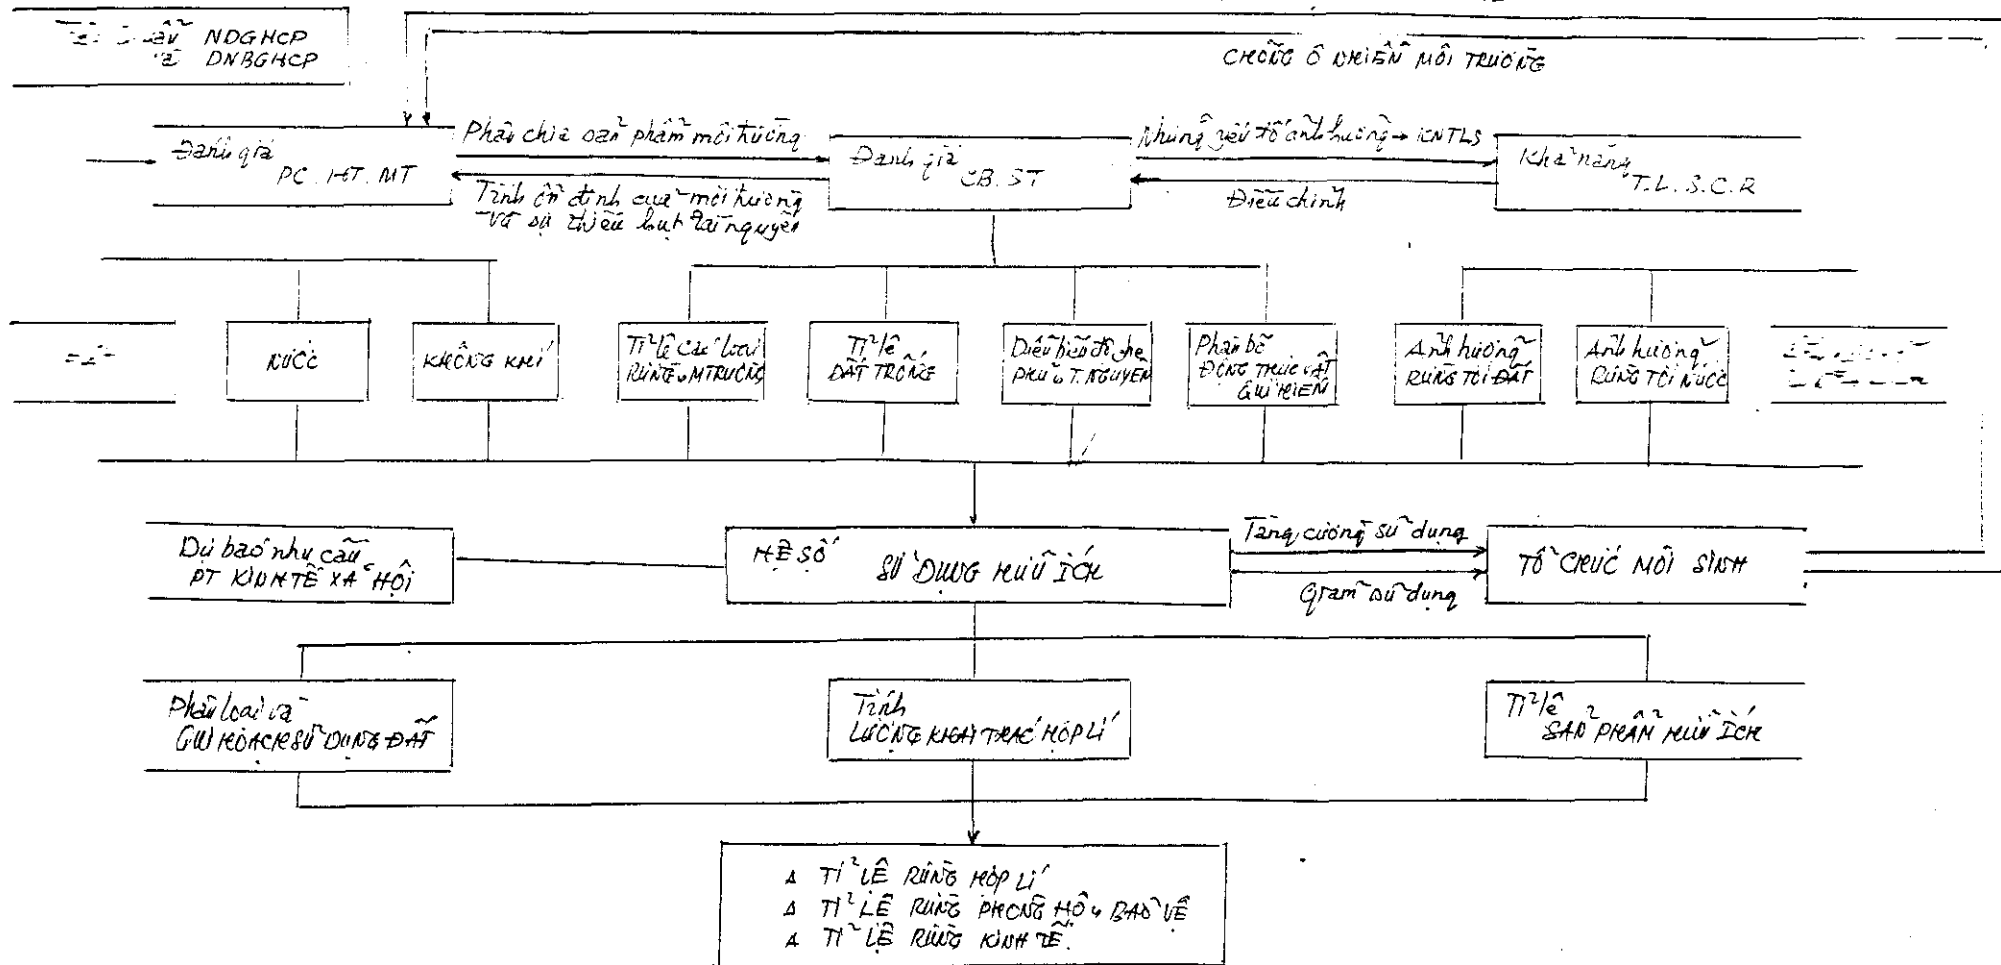 NDGHCP
DNBGHCP
CHỐNG Ô NHIỄM MÔI TRƯỜNG
Đánh giá
PC. HT. MT
Phân chia sản phẩm môi trường
Tính ổn định của môi trường
và sự thiếu hụt tài nguyên
Đánh giá
CB. ST
Những yếu tố ảnh hưởng → KNTLS
Điều chỉnh
Khả năng
T.L.S.C.R
NƯỚC
KHÔNG KHÍ
Tỉ lệ các loại
RỪNG & MTRƯỜNG
Tỉ lệ
ĐẤT TRỐNG
Diễn biến độ che
PHỦ & T. NGUYÊN
Phân bố
ĐỘNG THỰC VẬT
QUÍ HIẾM
Ảnh hưởng
RỪNG TỚI ĐẤT
Ảnh hưởng
RỪNG TỚI NƯỚC
Dự báo nhu cầu
PT KINH TẾ XÃ HỘI
HỆ SỐ
SỬ DỤNG HỮU ÍCH
Tăng cường sử dụng
Giảm sử dụng
TỔ CHỨC MÔI SINH
Phân loại và
QUI HOẠCH SỬ DỤNG ĐẤT
Tính
LƯỢNG KHAI THÁC HỢP LÍ
Tỉ lệ
SẢN PHẨM HỮU ÍCH
Δ TỈ LỆ RỪNG HỢP LÍ
Δ TỈ LỆ RỪNG PHÒNG HỘ & BẢO VỆ
Δ TỈ LỆ RỪNG KINH TẾ.